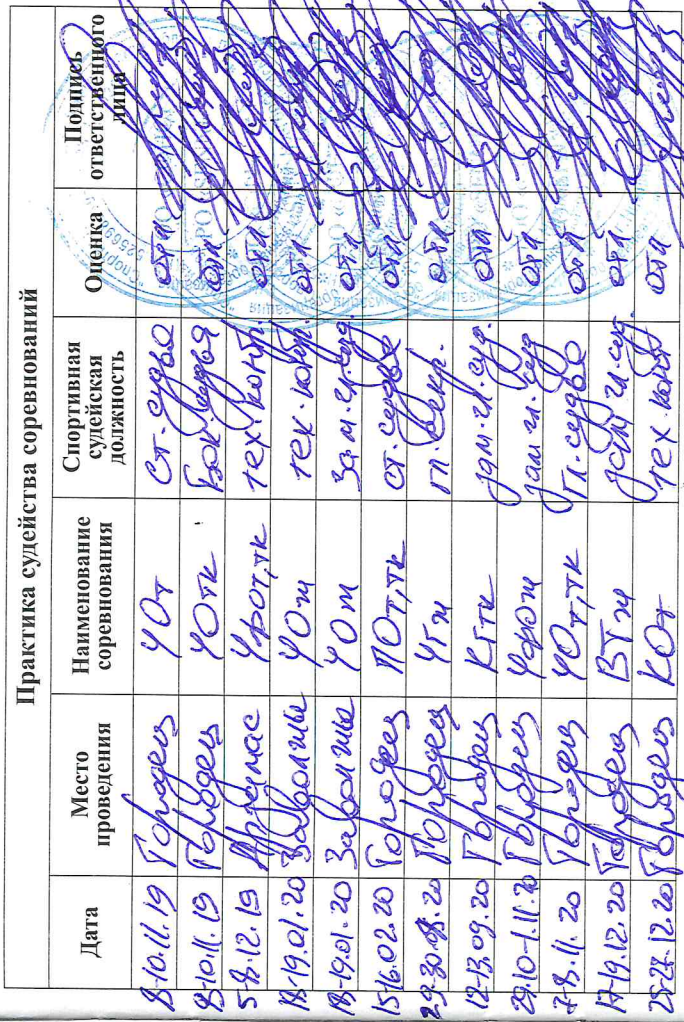 Практика судейства соревнований
Дата Место проведения Наименование соревнования Спортивная судейская должность Оценка Подпись ответственного лица
8-10.11.19 Городец ЧОт Ст. судья отл
8-10.11.19 Городец ЧОтк Бок. судья отл
5-8.12.19 Арзамас Чфот,тк тех. контр отл
18-19.01.20 Заволжье ЧОт тех. контр. отл
18-19.01.20 Заволжье ЧОт зам. гл. суд. отл
15-16.02.20 Городец ПОт,тк ст. судья отл
29-30.08.20 Городец гл. секр. отл
12-13.09.20 Городец КГтк зам. гл. суд. отл
29.10-1.11.20 Городец зам гл. суд отл
7-8.11.20 Городец ЧОт,тк Гл. судья отл
17-19.12.20 Городец зам гл. суд. отл
25-27.12.20 Городец КОт тех. контр отл